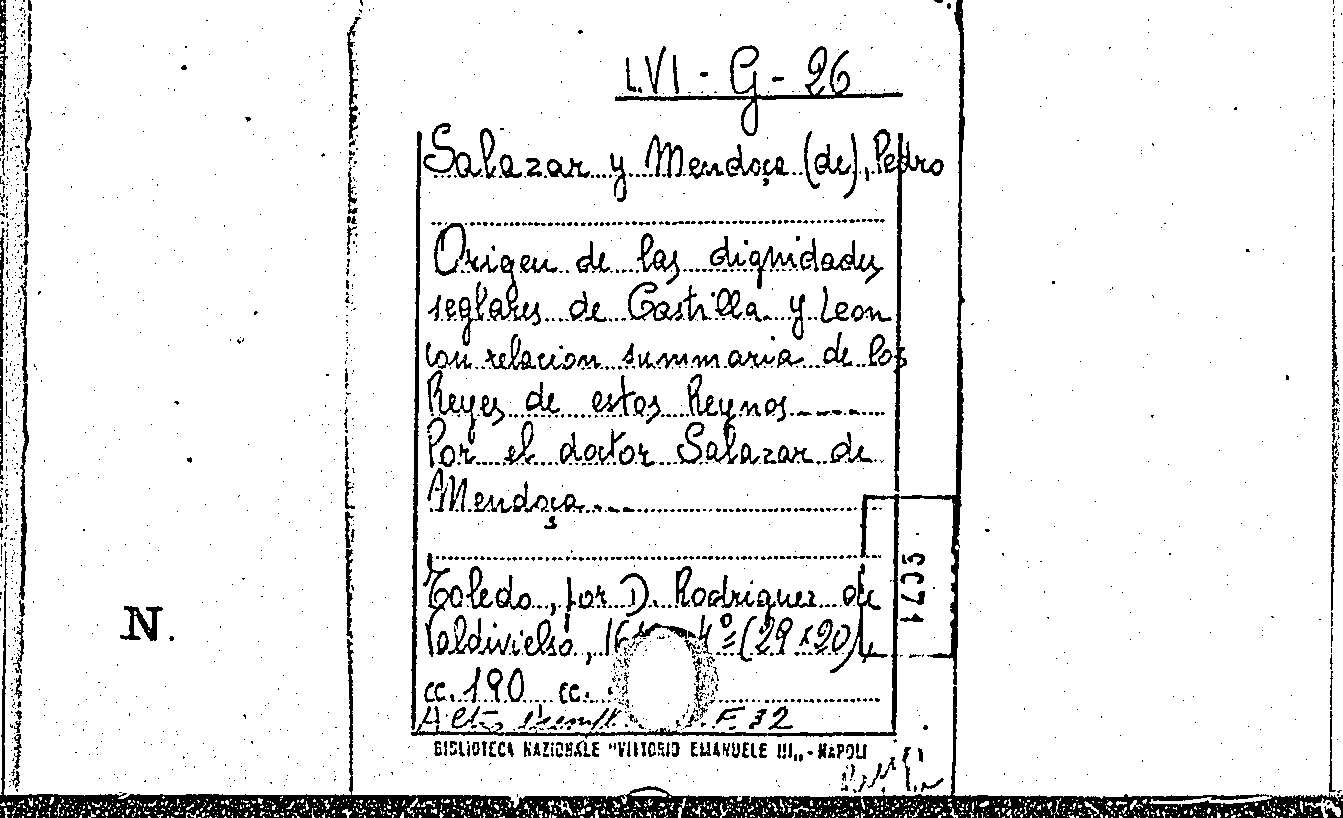 LVI - G - 26
Salazar y Mendoça (de), Pedro
Origen de las dignidades
seglares de Castilla y Leon
con relacion summaria de los
Reyes de estos Reynos
Por el doctor Salazar de
Mendoça
Toledo, por D. Rodriguez de
Valdivielso, 4º (29x20),
cc. 190 cc.
F. 32
BIBLIOTECA NAZIONALE "VITTORIO EMANUELE III„ - NAPOLI
N.